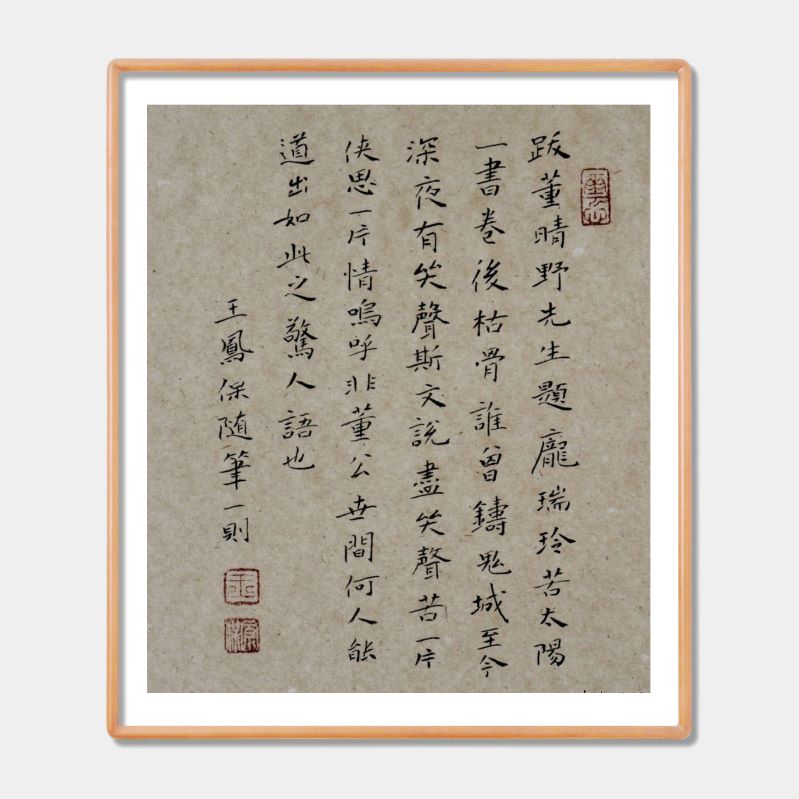 跋董晴野先生題龐瑞玲苦太陽
一書卷後枯骨誰曾鑄鬼城至今
深夜有笑聲斯文說盡笑聲苦一片
俠思一片情嗚呼非董公世間何人能
道出如此之驚人語也
王鳳保随筆一則